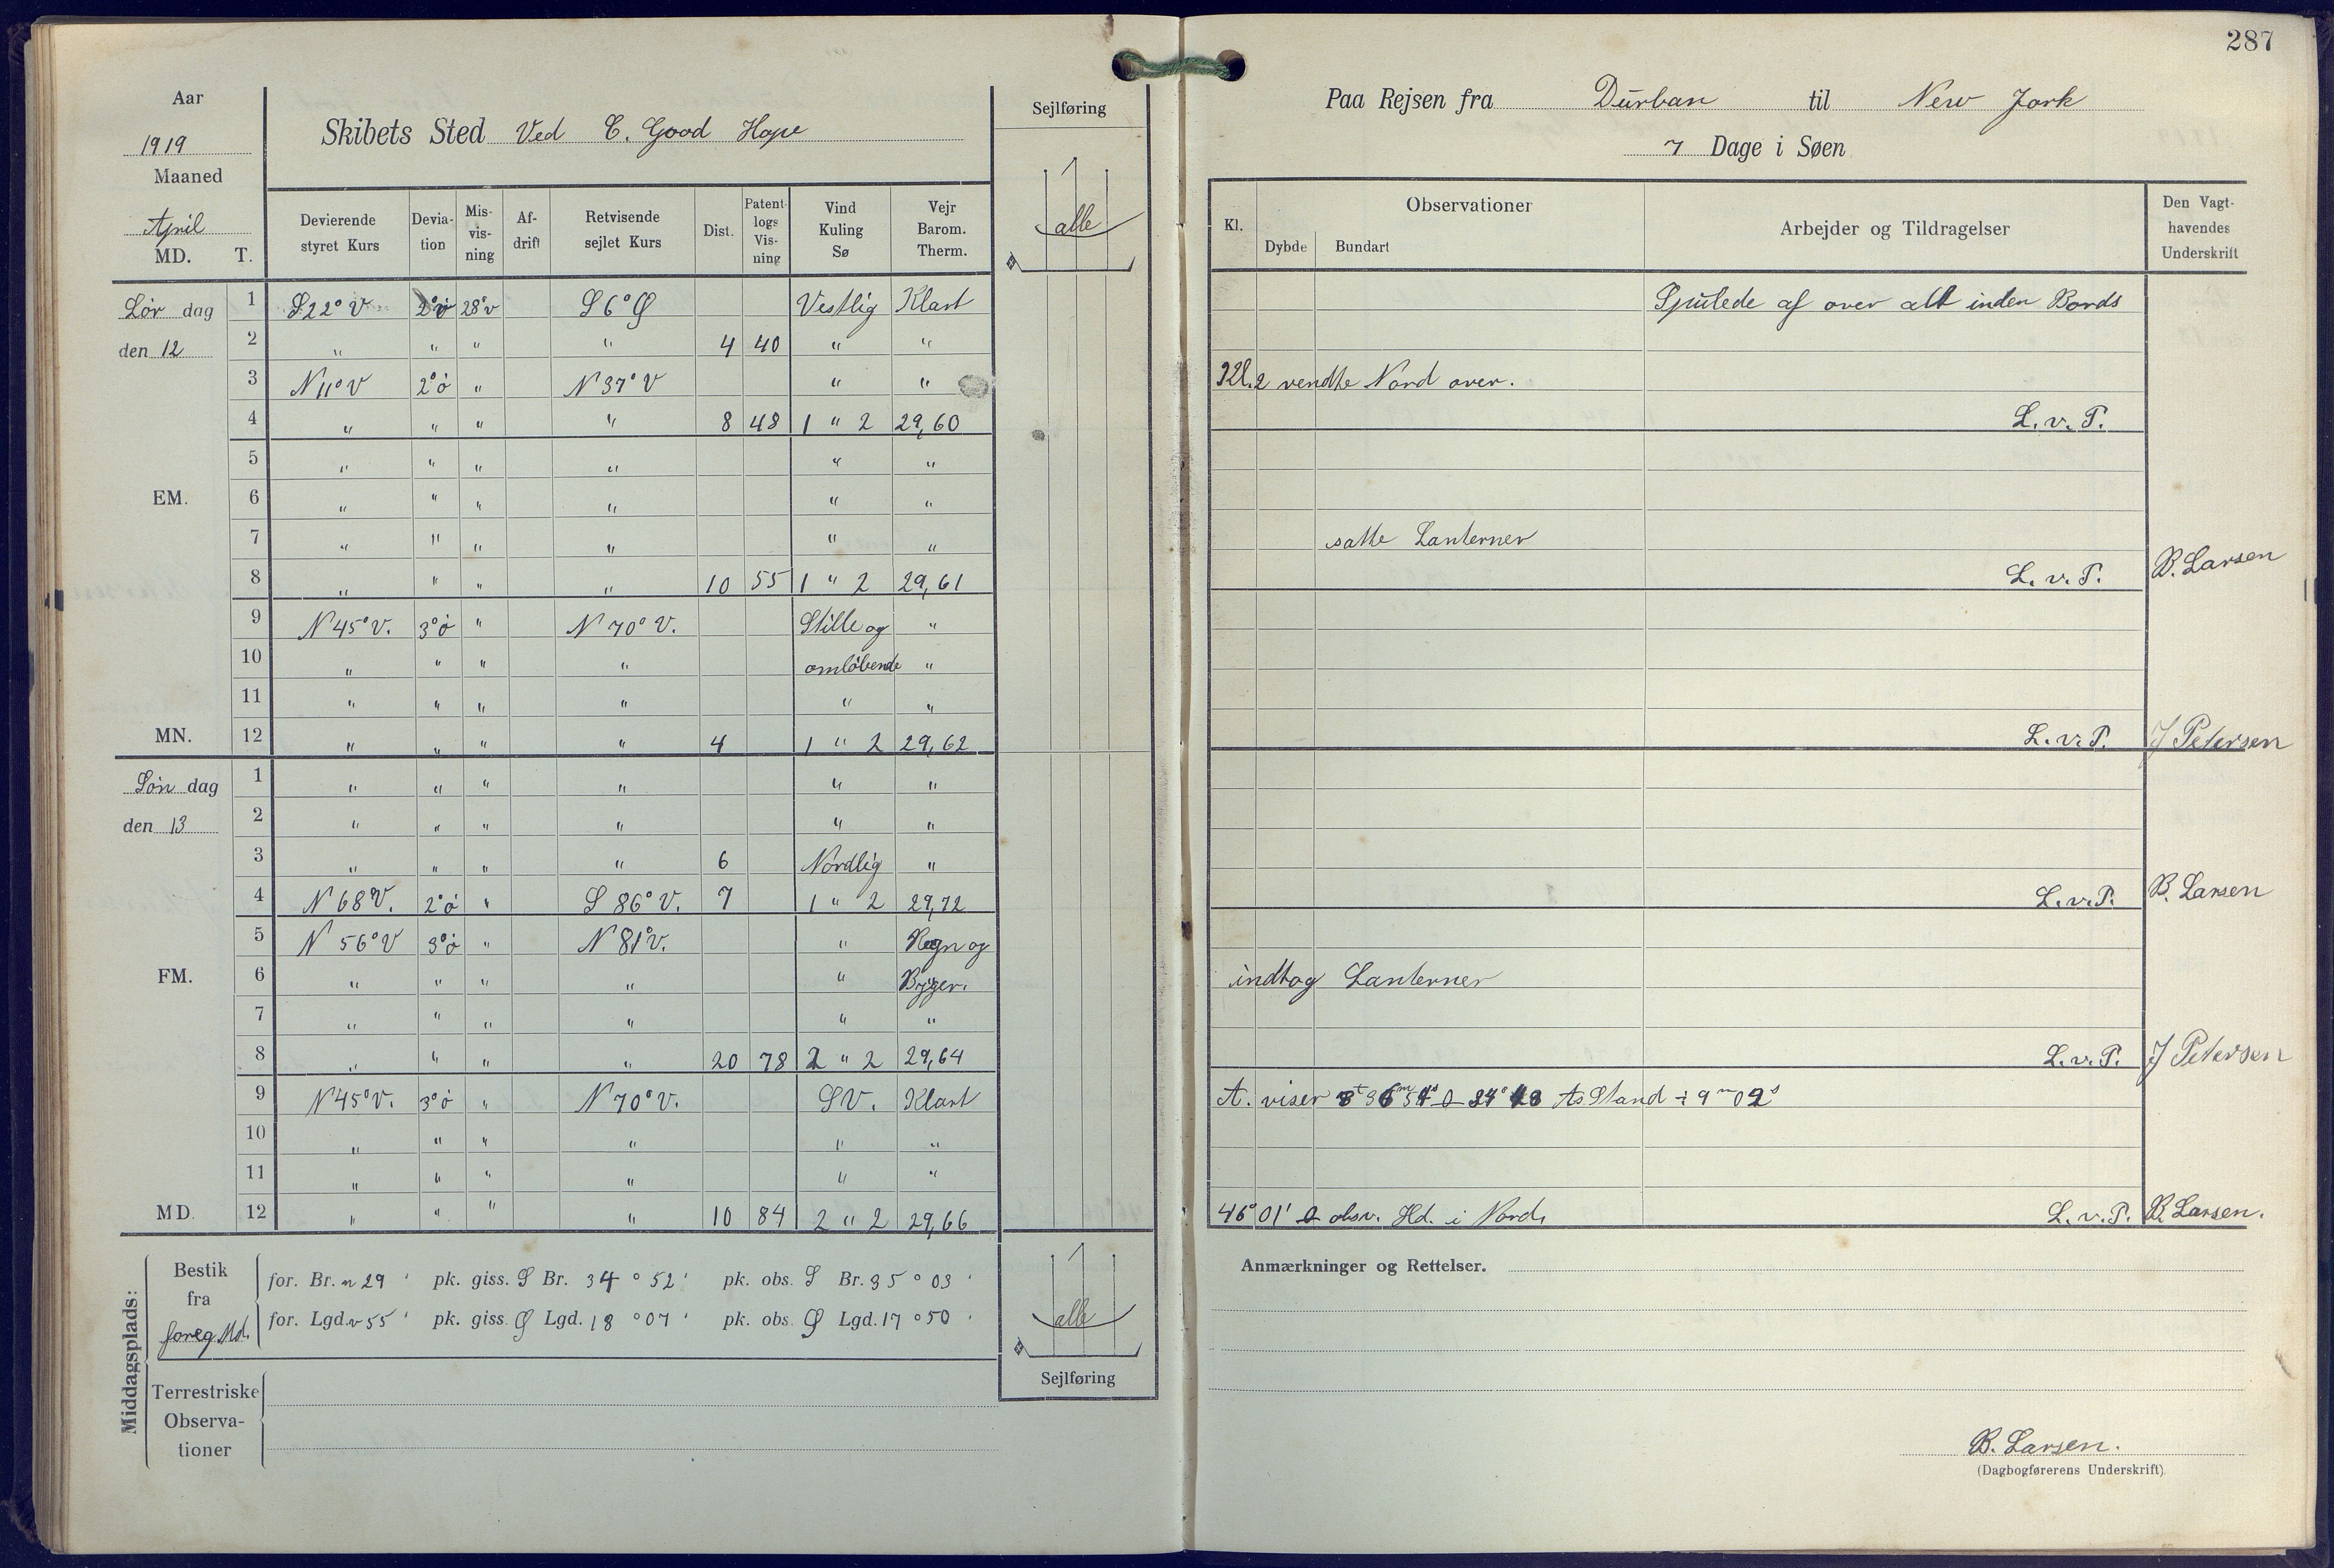 287
Aar
1919
Maaned
April
MD. T.
Skibets Sted Ved C. Good Hope
Sejlføring
alle
Devierende styret Kurs | Deviation | Misvisning | Afdrift | Retvisende sejlet Kurs | Dist. | Patentlogs Visning | Vind Kuling Sø | Vejr Barom. Therm.
Lør dag 1 S22°V 2°ö 28°v S6°Ø Vestlig Klart
den 12 2 " " " " 4 40 " "
3 N11°V 2°ö " N37°V " "
4 " " " " 8 48 1 " 2 29,60
5 " " " " " "
EM. 6 " " " " " "
7 " " " " " "
8 " " " " 10 55 1 " 2 29,61
9 N45°V. 3°ö " N70°V. Stille og "
10 " " " " omløbende "
11 " " " " " "
MN. 12 " " " " 4 1 " 2 29,62
Søn dag 1 " " " " " "
den 13 2 " " " " " "
3 " " " " 6 Nordlig "
4 N68V. 2°ö " S86°V. 7 1 " 2 29,72
5 N56°V 3°ö " N81°V. " Regn og
FM. 6 " " " " " Byger.
7 " " " " " "
8 " " " " 20 78 2 " 2 29,64
9 N45°V. 3°ö " N70°V. SV. Klart
10 " " " " " "
11 " " " " " "
MD. 12 " " " " 10 84 2 " 2 29,66
Middagsplads:
Bestik fra foreg. Md.
for. Br. n 29 ' pk. giss. S Br. 34 ° 52 ' pk. obs. S Br. 35 ° 03 '
for. Lgd. v 55 ' pk. giss. Ø Lgd. 18 ° 07 ' pk. obs. Ø Lgd. 17 ° 50 '
Terrestriske Observationer
alle
Sejlføring
Paa Rejsen fra Durban til New Jork
7 Dage i Søen
Kl. | Observationer | Dybde | Bundart | Arbejder og Tildragelser | Den Vagthavendes Underskrift
Spulede af over alt inden Bords
Kl. 2 vendte Nord over.
L. v. P.
satte Lanterner
L. v. P. B. Larsen
L. v. P. J Petersen
L. v. P. B. Larsen
indtog Lanterner
L. v. P. J Petersen
A. viser As Stand ÷ 9 m 02 s
46° 01' obsv. Hd. i Nord. L. v. P. B. Larsen.
Anmærkninger og Rettelser.
B. Larsen.
(Dagbogførerens Underskrift)